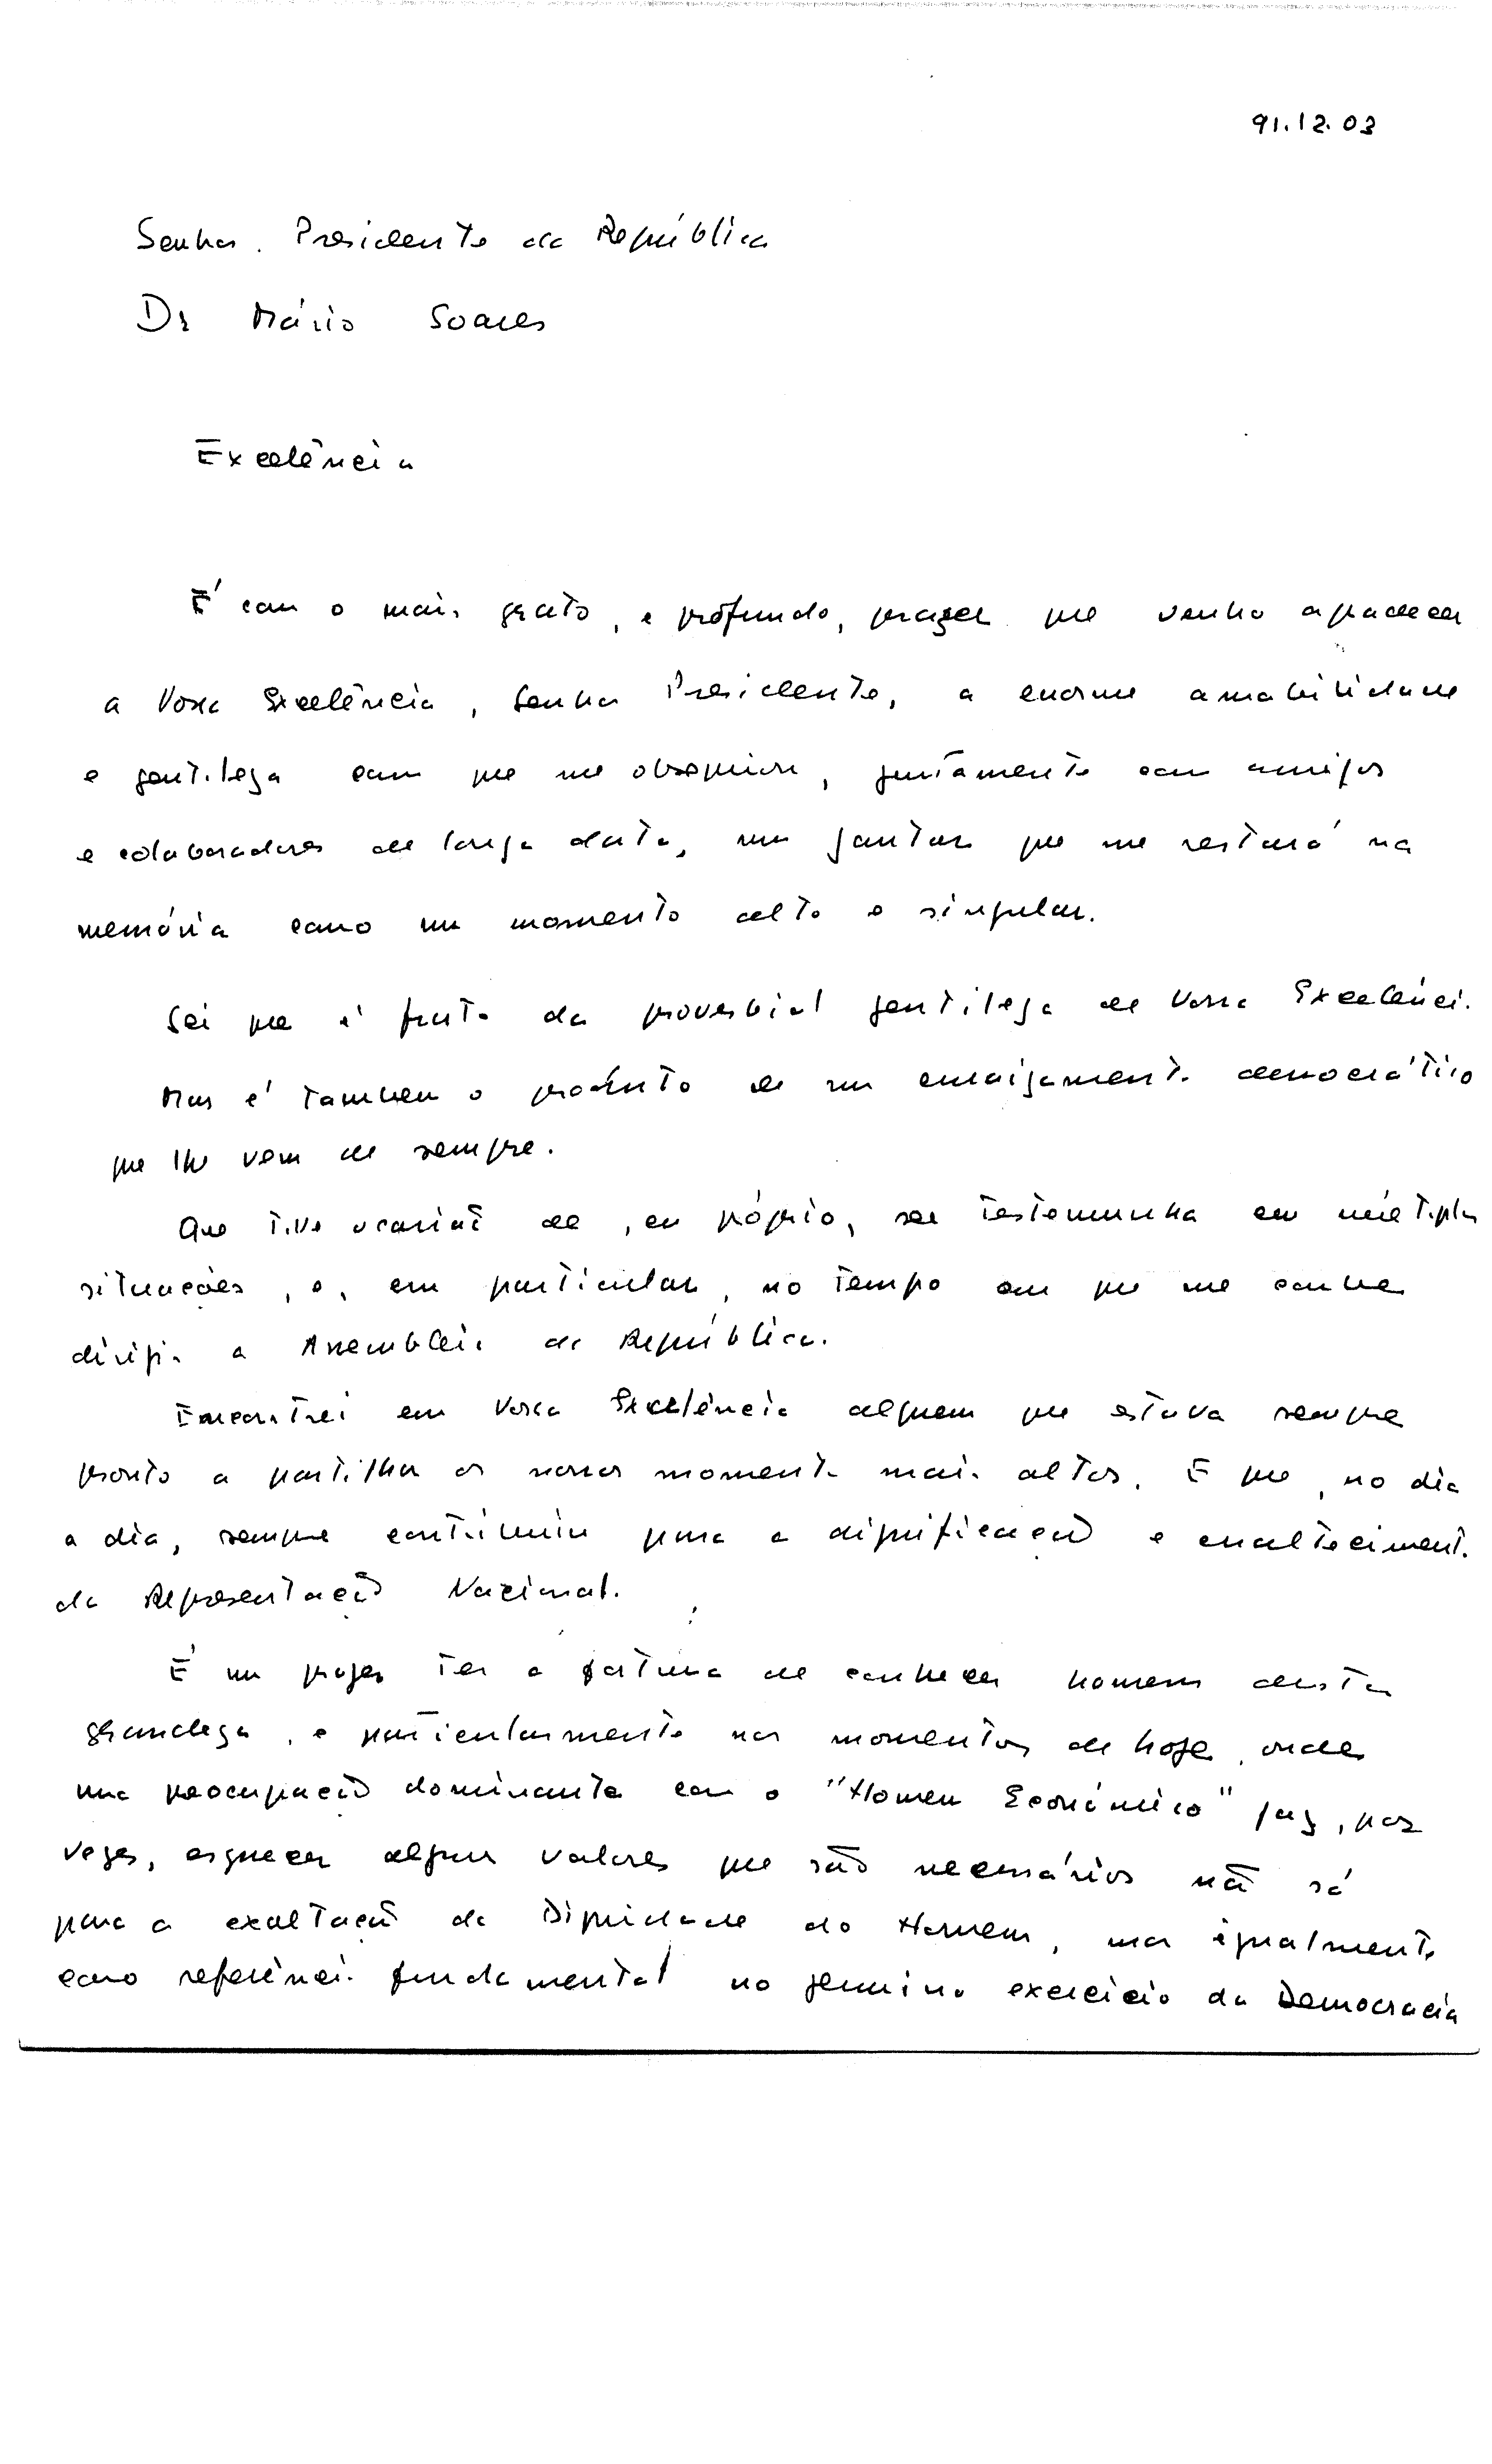 91.12.03
Senhor Presidente da República
Dr Mário Soares
Excelência
É com o mais grato, e profundo, prazer que venho agradecer
a Vossa Excelência, Senhor Presidente, a enorme amabilidade
e gentileza com que me obsequiou, juntamente com amigos
e colaboradores de longa data, num jantar que me restará na
memória como um momento alto e singular.
Sei que é fruto da proverbial gentileza de Vossa Excelência.
Mas é também o produto de um enraizamento democrático
que lhe vem de sempre.
Que tive ocasião de, eu próprio, ser testemunha em múltiplas
situações, e, em particular, no tempo em que me coube
dirigir a Assembleia da República.
Encontrei em Vossa Excelência alguém que estava sempre
pronto a partilhar os nossos momentos mais altos. E que, no dia
a dia, sempre contribuiu para a dignificação e enaltecimento
da Representação Nacional.
É um prazer ter a fortuna de conhecer homens desta
grandeza, e particularmente nos momentos de hoje, onde
uma preocupação dominante com o "Homem Económico" faz, por
vezes, esquecer alguns valores que são necessários não só
para a exaltação da Dignidade do Homem, mas igualmente
como referência fundamental no genuíno exercício da Democracia